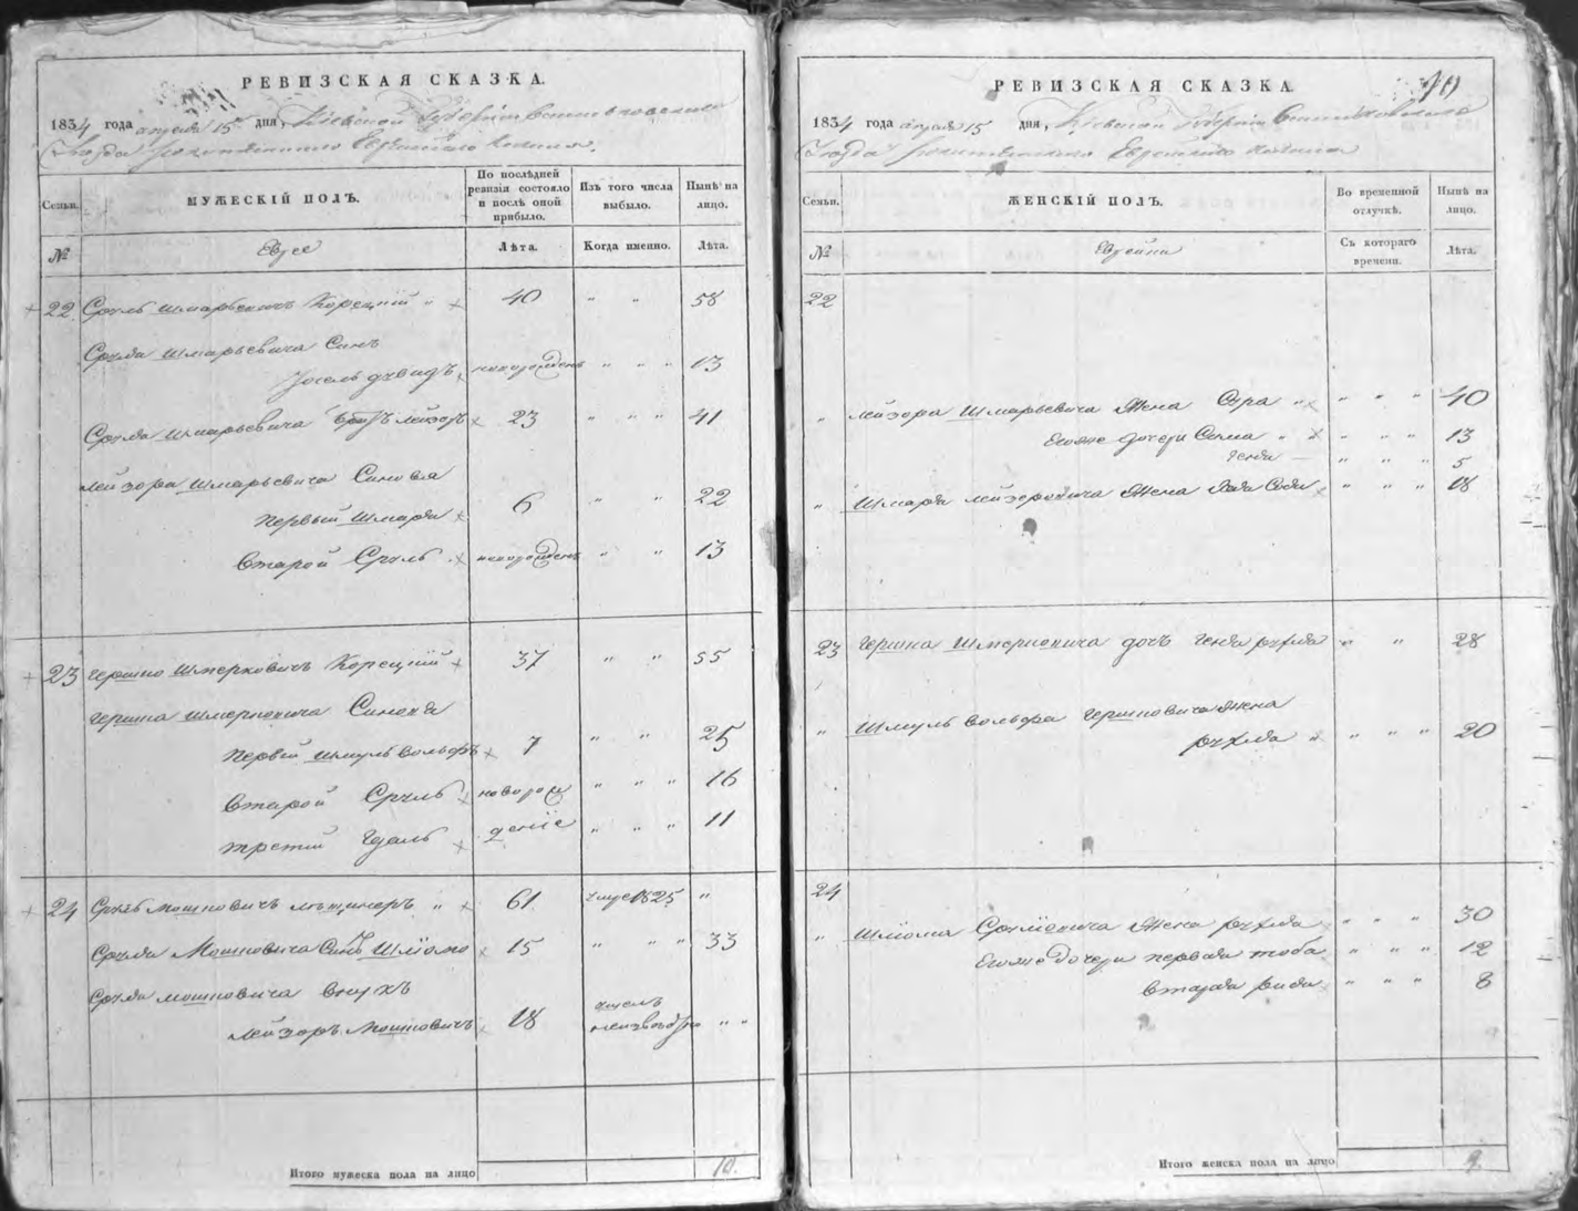 РЕВИЗСКАЯ СКАЗКА.
1834 года апреля 15 дня, Киевской Губернии
Уезда Еврейского
Семьи. МУЖЕСКІЙ ПОЛЪ. По послѣдней ревизіи состояло и послѣ оной прибыло. Изъ того числа выбыло. Нынѣ на лицо.
№ Евреe Лѣта. Когда именно. Лѣта.
22 Сруль Шмарьевичъ Корецкій " 40 " " 58
Сруля Шмарьевича Синъ
Іосель Дувидъ новорожденъ " " " 13
Сруля Шмарьевича братъ Лейзоръ 23 " " " 41
Лейзора Шмарьевича Синовья
первый Шмаря 6 " " 22
Второй Сруль новорожденъ " " 13
23 Гершко Шмерковичъ Корецкій 37 " " 55
Гершка Шмерковича Синовья
Первій Шмуль Вольфъ 7 " " 25
Второй Сруль новорож " " " 16
третій деніе " " " 11
24 Сруль Мошковичъ " 61 1825 "
Сруля Мошковича Синъ Шліомо 15 " " " 33
Сруля Мошковича внукъ
Лейзоръ Мошковичъ 18 " "
Итого мужеска пола на лицо 10.
РЕВИЗСКАЯ СКАЗКА.
1834 года апреля 15 дня, Киевской Губернии
Уезда Еврейского
Семьи. ЖЕНСКІЙ ПОЛЪ. Во временной отлучкѣ. Нынѣ на лицо.
№ Еврейки Съ котораго времени. Лѣта.
22
" Лейзора Шмарьевича Жена Сура " " " " 40
Егоже дочери Сима " " " " 13
Генья " " " 5
" Шмаря Лейзеровича Жена " " " 18
23 Гершка Шмерковича дочъ Рухля " " 28
" Шмуль Вольфа Гершковича Жена
Рухля " " " " 20
24
" Шліома Срулiовича Жена Рухля " " " 30
Егоже Дочери первая тоба " " " 12
Вторая " " " 8
Итого женска пола на лицо 9.